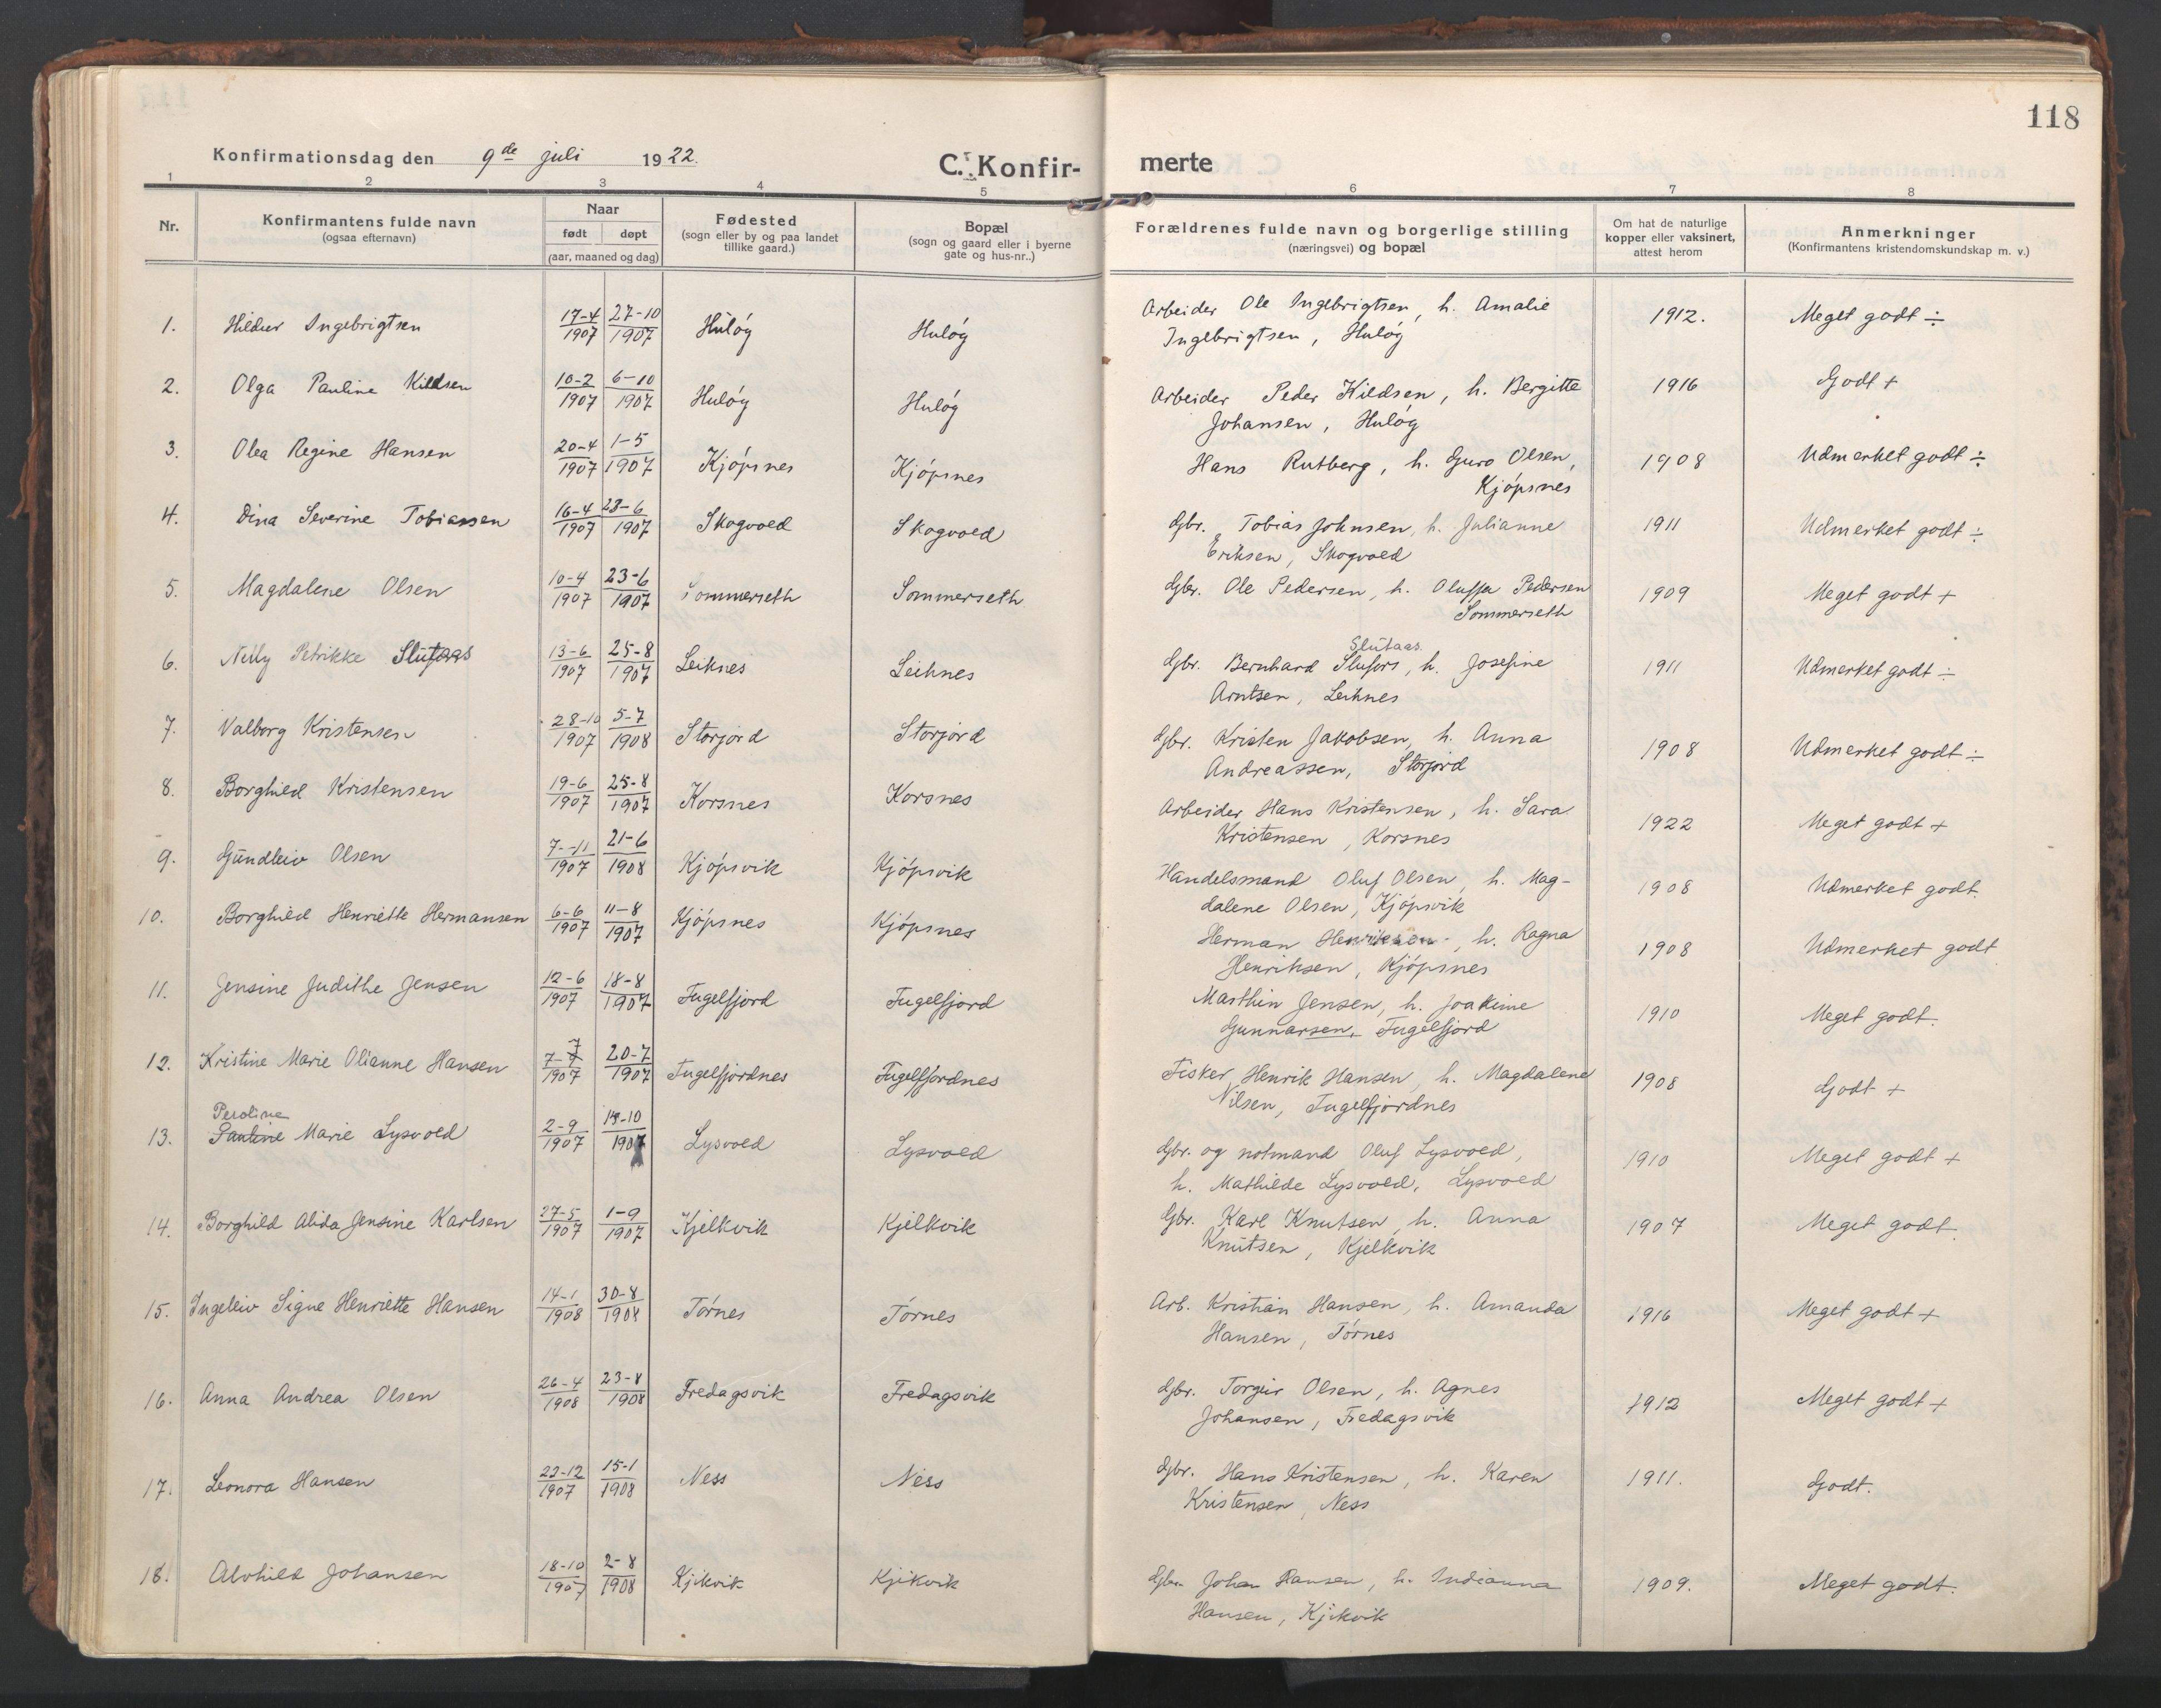 118
Konfirmationsdag den 9de juli 1922.
C. Konfirmerte
1 2 3 4 5 6 7 8
Nr.
Konfirmantens fulde navn
(ogsaa efternavn)
Naar
født døpt
(aar, maaned og dag)
Fødested
(sogn eller by og paa landet
tillike gaard.)
Bopæl
(sogn og gaard eller i byerne
gate og hus-nr..)
Forældrenes fulde navn og borgerlige stilling
(næringsvei) og bopæl
Om hat de naturlige
kopper eller vaksinert,
attest herom
Anmerkninger
(Konfirmantens kristendomskundskap m. v.)
1. Hildur Ingebrigtsen 17-4 1907 27-10 1907 Huløy Huløy Arbeider Ole Ingebrigtsen, h. Amalie 1912. Meget godt ÷
Ingebrigtsen, Huløy
2. Olga Pauline Kildsen 10-2 1907 6-10 1907 Huløy Huløy Arbeider Peder Kildsen, h. Bergitte 1916 Godt +
Johansen, Huløy
3. Olea Regine Hansen 20-4 1907 1-5 1907 Kjøpsnes Kjøpsnes Hans Rutberg, h. Guro Olsen, 1908 Udmerket godt ÷
Kjøpsnes
4. Dina Severine Tobiassen 16-4 1907 23-6 1907 Skogvold Skogvold Gbr. Tobias Johnsen, h. Julianne 1911 Udmerket godt ÷
Eriksen, Skogvold
5. Magdalene Olsen 10-4 1907 23-6 1907 Sommerseth Sommerseth Gbr. Ole Pedersen, h. Oluffa Pedersen 1909 Meget godt +
Sommerseth
6. Nelly Petrikke Slutaas 13-6 1907 25-8 1907 Leiknes Leiknes Gbr. Bernhard Slufors, h. Josefine 1911 Udmerket godt ÷
Slutaas
Arntsen, Leiknes
7. Valborg Kristensen 28-10 1907 5-7 1908 Storjord Storjord Gbr. Kristen Jakobsen, h. Anna 1908 Udmerket godt ÷
Andreassen, Storjord
8. Borghild Kristensen 19-6 1907 25-8 1907 Korsnes Korsnes Arbeider Hans Kristensen, h. Sara 1922 Meget godt +
Kristensen, Korsnes
9. Gundleiv Olsen 7-11 1907 21-6 1908 Kjøpsvik Kjøpsvik Handelsmand Oluf Olsen, h. Mag- 1908 Udmerket godt.
dalene Olsen, Kjøpsvik
10. Borghild Henriette Hermansen 6-6 1907 11-8 1907 Kjøpsnes Kjøpsnes Herman Henriksen, h. Ragna 1908 Udmerket godt
Henriksen, Kjøpsnes
11. Jensine Judithe Jensen 12-6 1907 18-8 1907 Fugelfjord Fugelfjord Marthin Jensen, h. Joakime 1910 Meget godt.
Gunnarsen, Fugelfjord
12. Kristine Marie Olianne Hansen 7-7 1907 20-7 1907 Fugelfjordnes Fugelfjordnes Fisker Henrik Hansen, h. Magdalene 1908 Godt +
Nilsen, Fugelfjordnes
Peroline
13. Pauline Marie Lysvold 2-9 1907 13-10 1907 Lysvold Lysvold Gbr. og notmand Oluf Lysvold, 1910 Meget godt +
h. Mathilde Lysvold, Lysvold
14. Borghild Alida Jensine Karlsen 27-5 1907 1-9 1907 Kjelkvik Kjelkvik Gbr. Karl Knutsen, h. Anna 1907 Meget godt.
Knutsen, Kjelkvik
15. Ingeleiv Signe Henriette Hansen 14-1 1908 30-8 1908 Tørnes Tørnes Arb. Kristian Hansen, h. Amanda 1916 Meget godt +
Hansen, Tørnes
16. Anna Andrea Olsen 26-4 1908 23-8 1908 Fredagsvik Fredagsvik Gbr. Torgeir Olsen, h. Agnes 1912 Meget godt +
Johansen, Fredagsvik
17. Leonora Hansen 22-12 1907 15-1 1908 Ness Ness Gbr. Hans Kristensen, h. Karen 1911. Godt.
Kristensen, Ness
18. Alvhild Johansen 18-10 1907 2-8 1908 Kjikvik Kjikvik Gbr. Johan Hansen, h. Indianna 1909. Meget godt.
Hansen, Kjikvik